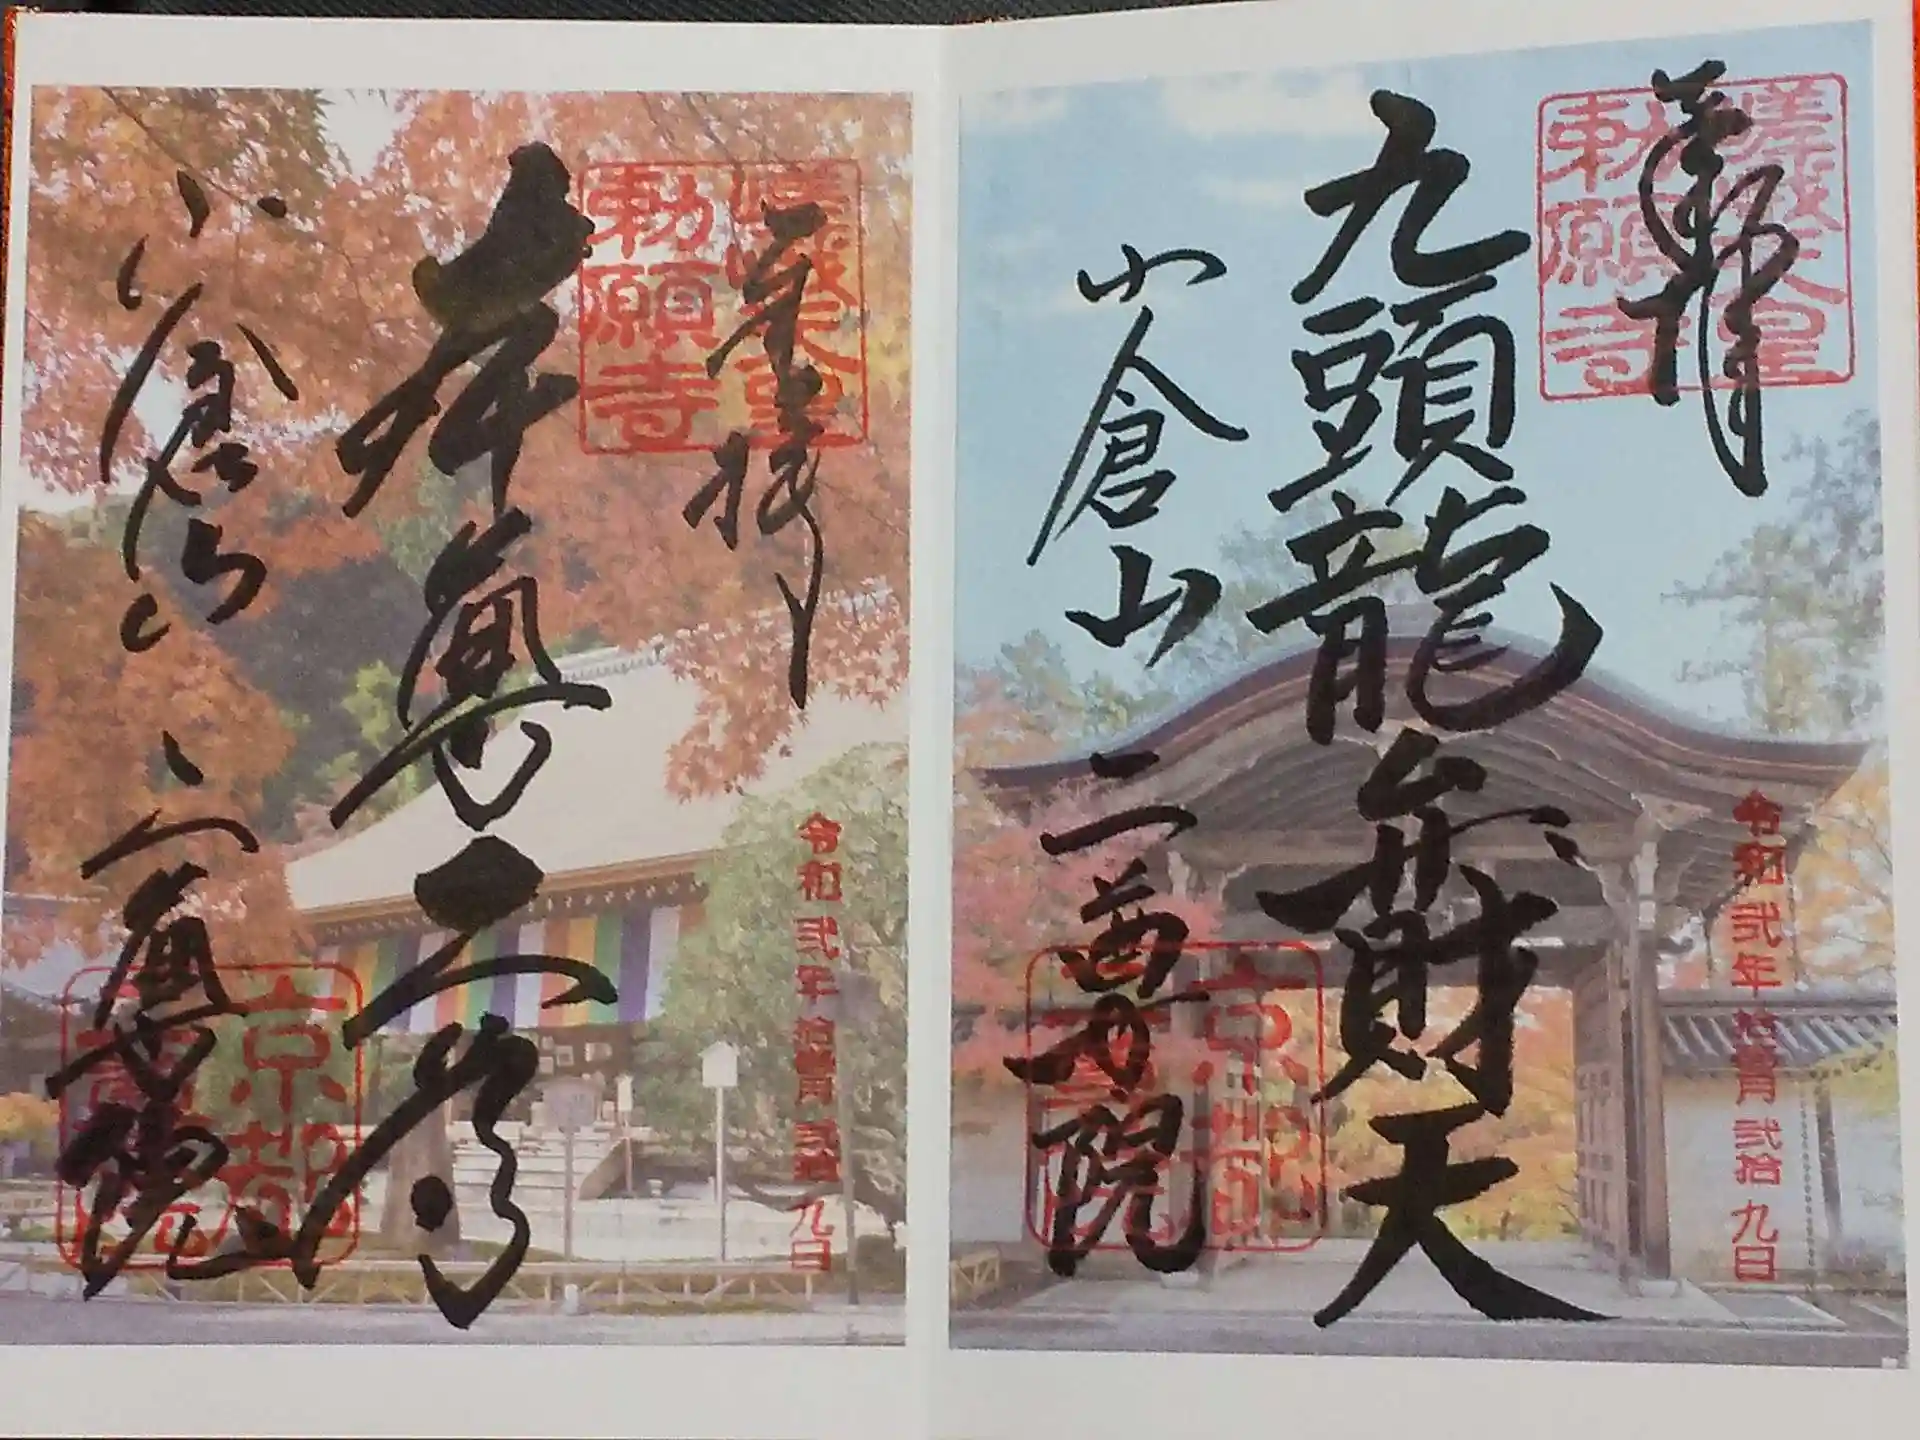 奉拝
嵯峨天皇
勅願寺
令和弐年拾壹月弐拾九日
九頭龍弁財天
小倉山
二尊院
京都
二尊院
奉拝
嵯峨天皇
勅願寺
令和弐年拾壹月弐拾九日
本尊二尊
小倉山
二尊院
京都
二尊院